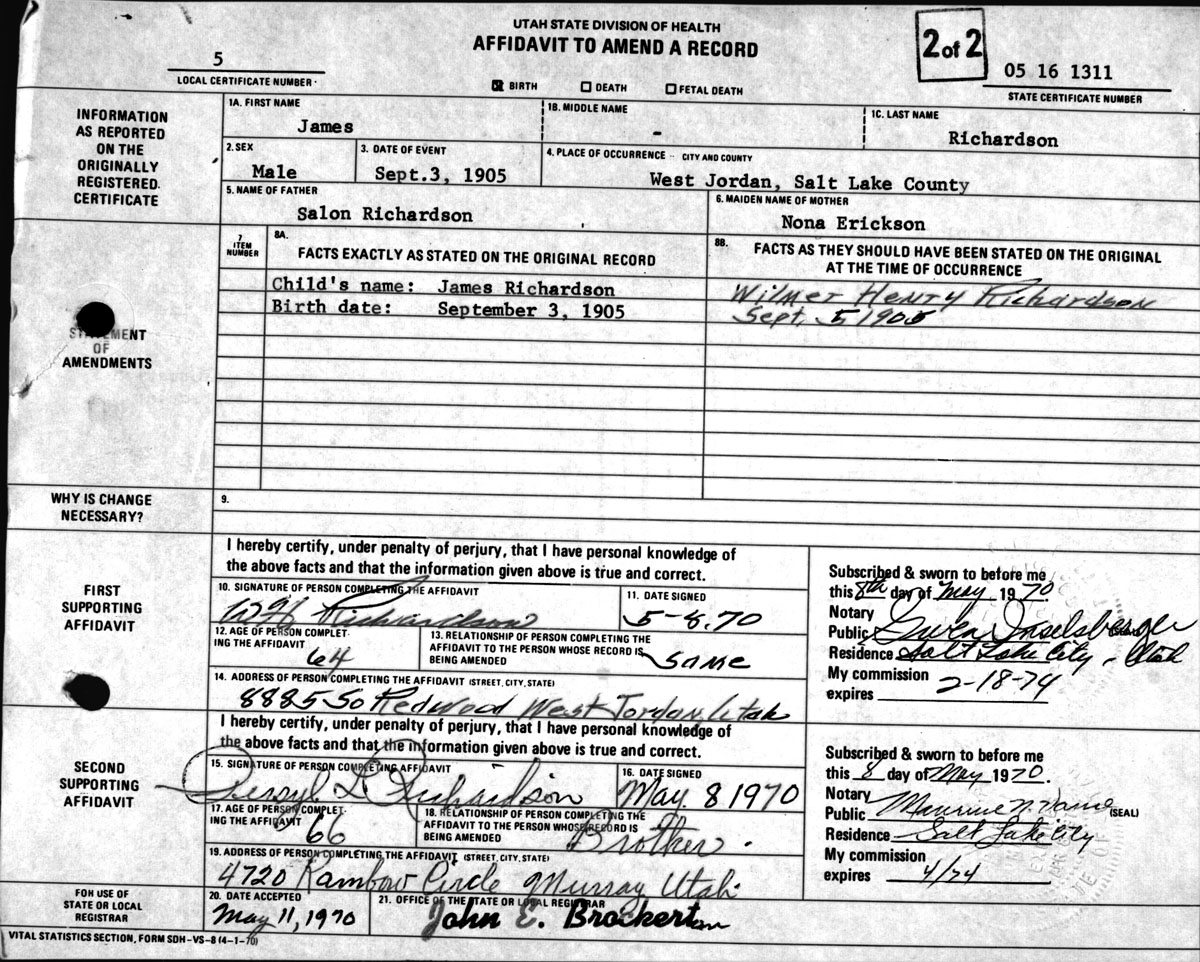 UTAH STATE DIVISION OF HEALTH
AFFIDAVIT TO AMEND A RECORD
2 of 2
5
LOCAL CERTIFICATE NUMBER
BIRTH DEATH FETAL DEATH
05 16 1311
STATE CERTIFICATE NUMBER
INFORMATION
AS REPORTED
ON THE
ORIGINALLY
REGISTERED.
CERTIFICATE
1A. FIRST NAME
James
1B. MIDDLE NAME
-
1C. LAST NAME
Richardson
2. SEX
Male
3. DATE OF EVENT
Sept.3, 1905
4. PLACE OF OCCURRENCE - CITY AND COUNTY
West Jordan, Salt Lake County
5. NAME OF FATHER
Salon Richardson
6. MAIDEN NAME OF MOTHER
Nona Erickson
STATEMENT
OF
AMENDMENTS
7
ITEM
NUMBER
8A.
FACTS EXACTLY AS STATED ON THE ORIGINAL RECORD
8B. FACTS AS THEY SHOULD HAVE BEEN STATED ON THE ORIGINAL
AT THE TIME OF OCCURRENCE
Child's name: James Richardson
Wilmer Henry Richardson
Birth date: September 3, 1905
Sept. 5 1905
WHY IS CHANGE
NECESSARY?
9.
FIRST
SUPPORTING
AFFIDAVIT
I hereby certify, under penalty of perjury, that I have personal knowledge of
the above facts and that the information given above is true and correct.
10. SIGNATURE OF PERSON COMPLETING THE AFFIDAVIT
Richardson
11. DATE SIGNED
5-8.70
12. AGE OF PERSON COMPLET-
ING THE AFFIDAVIT
64
13. RELATIONSHIP OF PERSON COMPLETING THE
AFFIDAVIT TO THE PERSON WHOSE RECORD IS
BEING AMENDED
Same
14. ADDRESS OF PERSON COMPLETING THE AFFIDAVIT (STREET, CITY, STATE)
8885 So Redwood West Jordan, Utah
Subscribed & sworn to before me
this 8th day of May 1970
Notary
Public Gwen Inselsberger
Residence Salt Lake City - Utah
My commission
expires 2-18-74
SECOND
SUPPORTING
AFFIDAVIT
I hereby certify, under penalty of perjury, that I have personal knowledge of
the above facts and that the information given above is true and correct.
15. SIGNATURE OF PERSON COMPLETING AFFIDAVIT
L Richardson
16. DATE SIGNED
May. 8 1970
17. AGE OF PERSON COMPLET-
ING THE AFFIDAVIT
66
18. RELATIONSHIP OF PERSON COMPLETING THE
AFFIDAVIT TO THE PERSON WHOSE RECORD IS
BEING AMENDED
Brother.
19. ADDRESS OF PERSON COMPLETING THE AFFIDAVIT (STREET, CITY, STATE)
4720 Rambow Circle Murray Utah.
Subscribed & sworn to before me
this 8 day of May 1970.
Notary
Public (SEAL)
Residence Salt Lake City
My commission
expires 4/74
FOR USE OF
STATE OR LOCAL
REGISTRAR
20. DATE ACCEPTED
May 11, 1970
21. OFFICE OF THE STATE OR LOCAL REGISTRAR
John E. Brockert
VITAL STATISTICS SECTION, FORM SDH-VS-8 (4-1-70)